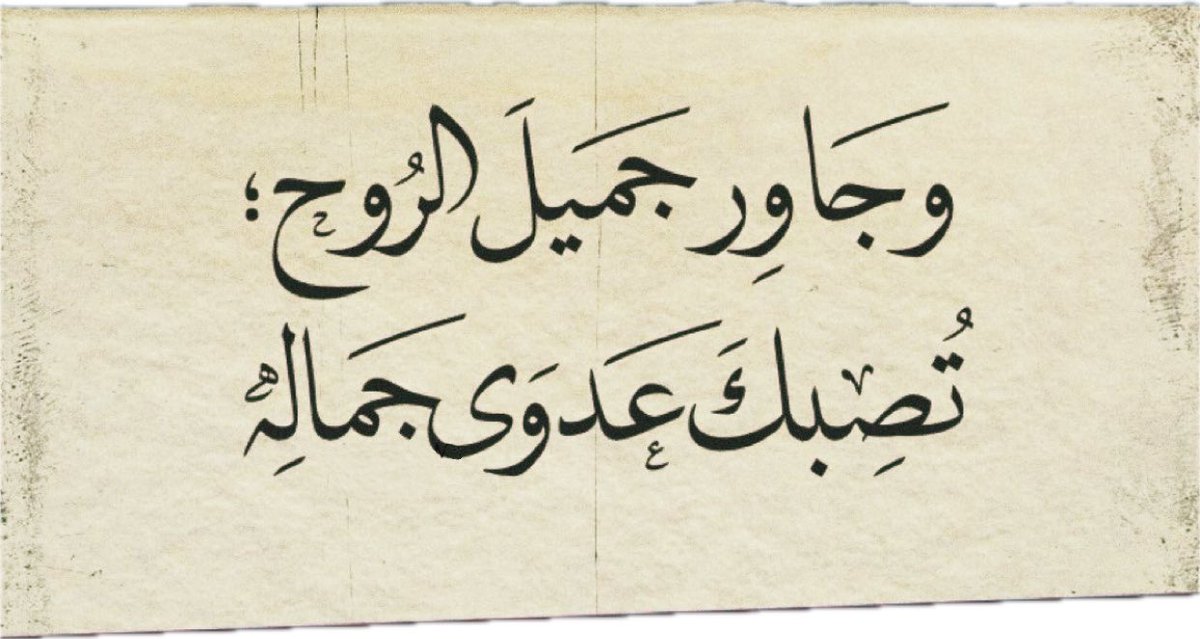 وجَاوِر جَميلَ الرُوح؛
تُصِبكَ عَدوَى جمالِه